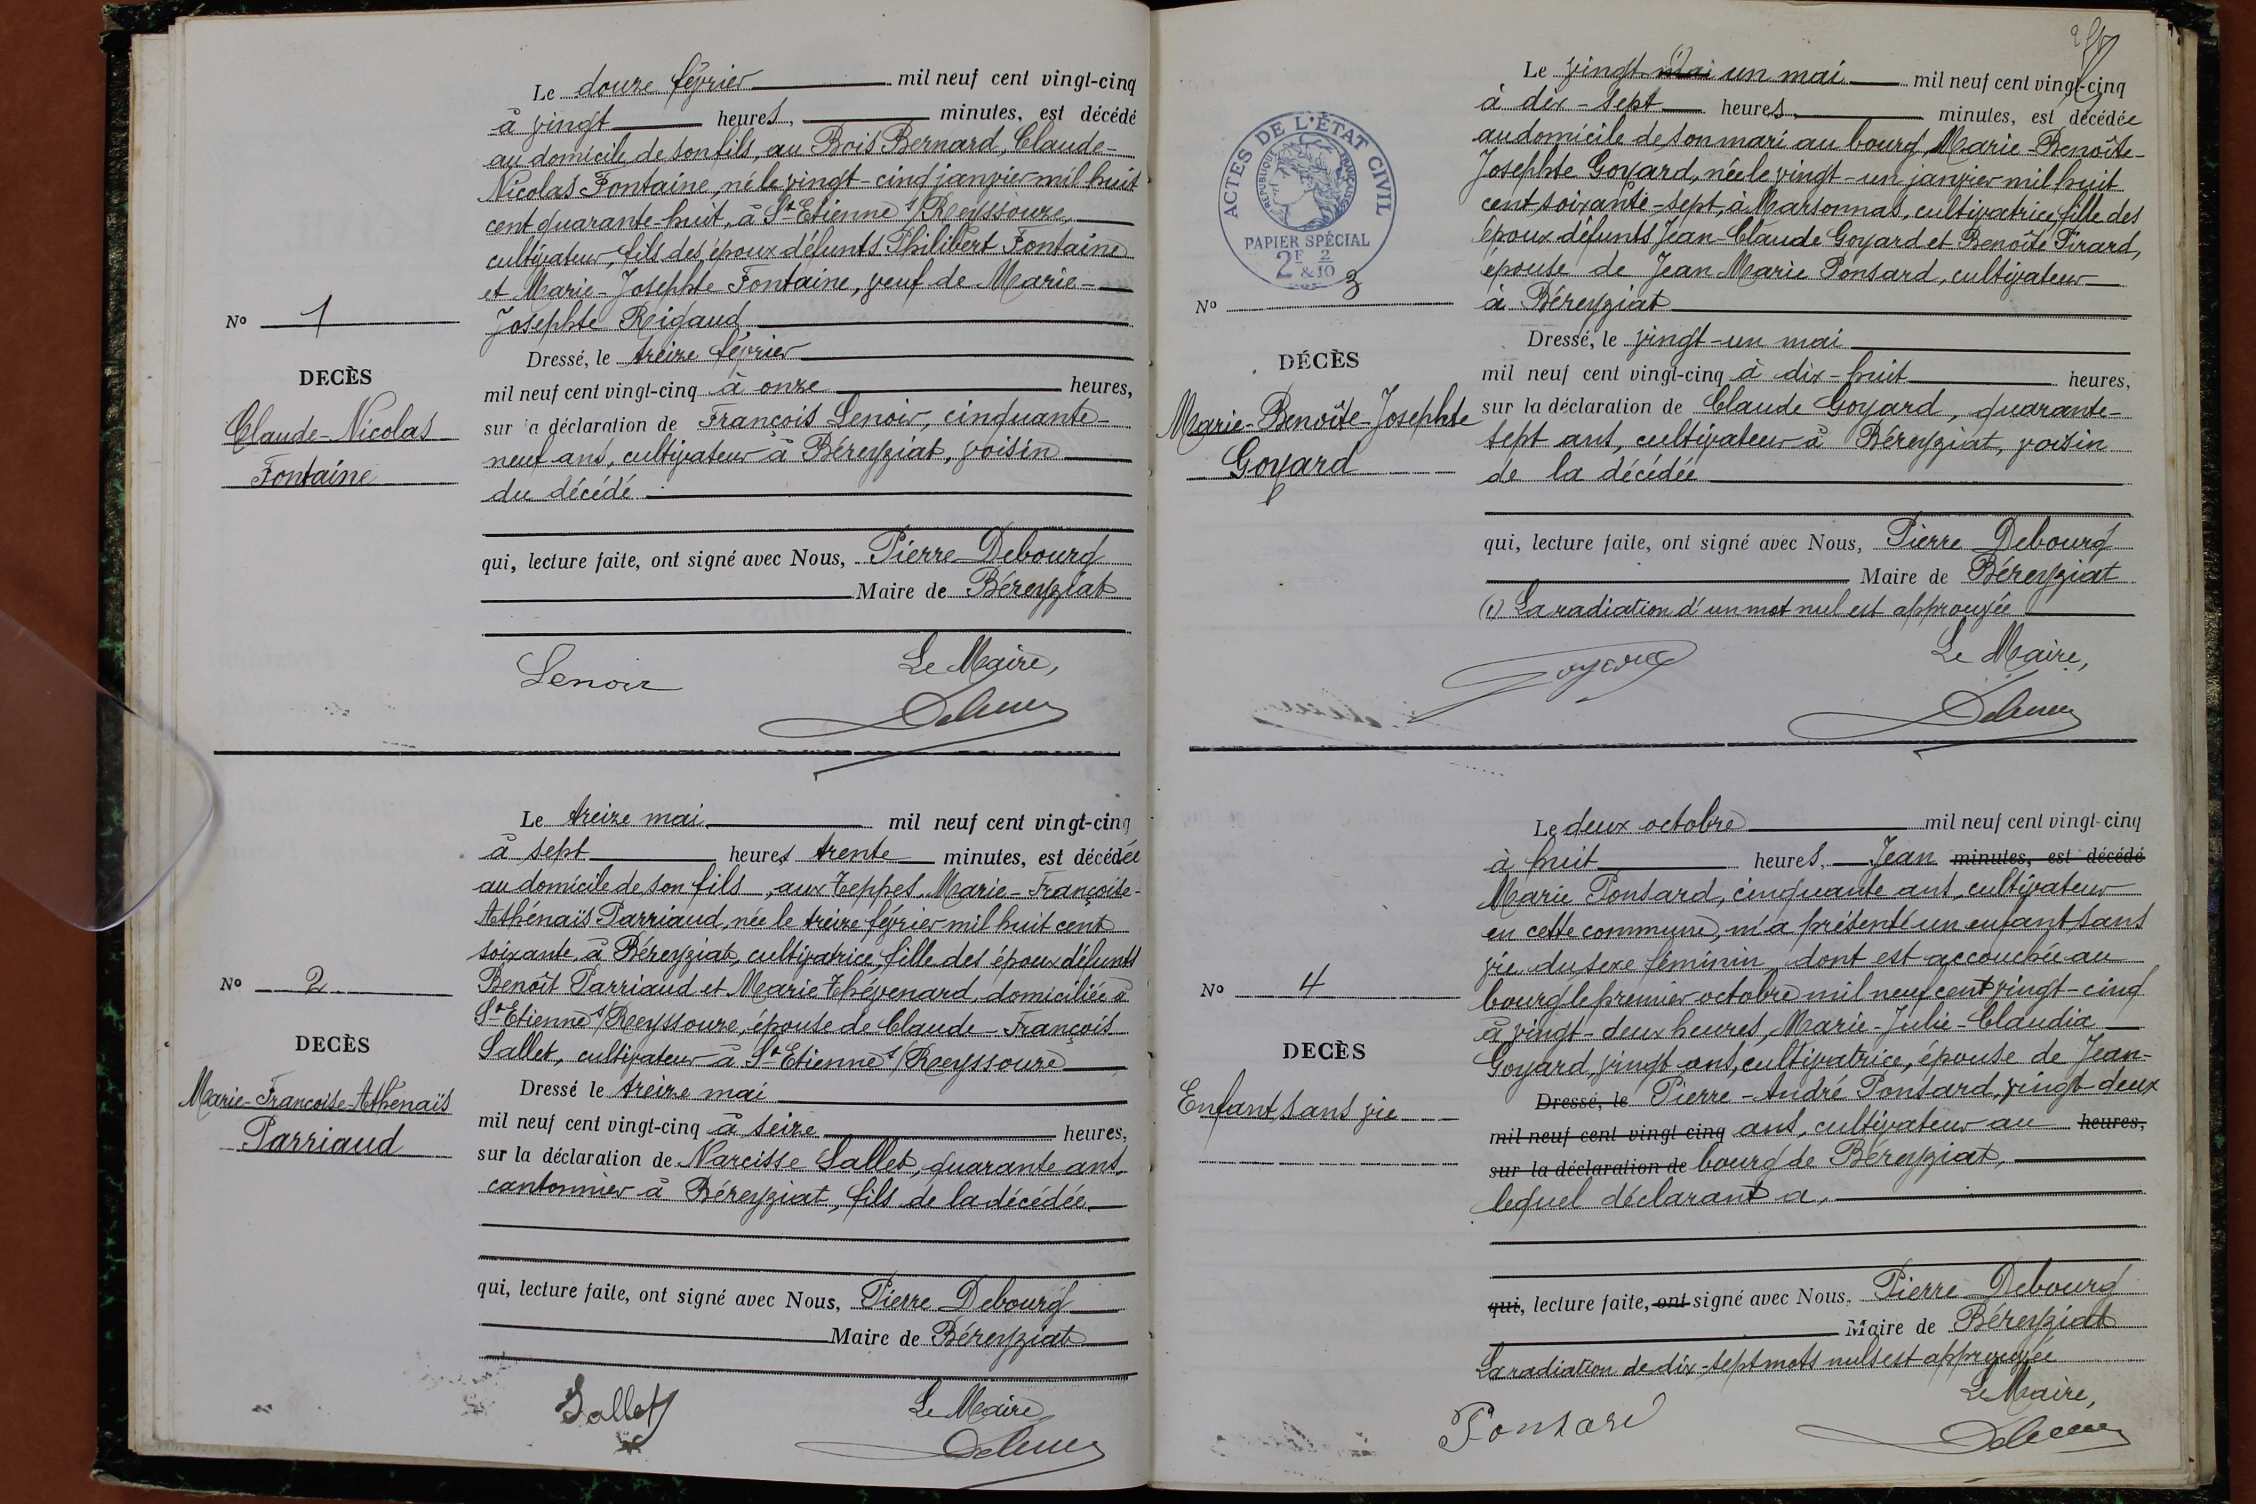 Le douze février mil neuf cent vingt-cinq
à vingt heures, minutes, est décédé
au domicile de son fils, au Bois Bernard, Claude-
Nicolas Fontaine, né le vingt-cinq janvier mil huit
cent quarante-huit, à St Etienne s/Reyssouze,
cultivateur, fils des époux défunts Philibert Fontaine
et Marie-Josephte Fontaine, veuf de Marie-
Josephte Rigaud
Dressé, le treize février
mil neuf cent vingt-cinq à onze heures,
sur la déclaration de François Lenoir, cinquante-
neuf ans, cultivateur à Béreyziat, voisin
du décédé
qui, lecture faite, ont signé avec Nous, Pierre Debourg
Maire de Béreyziat
Nº 1
DECÈS
Claude-Nicolas
Fontaine
Lenoir
Le Maire,
Le treize mai mil neuf cent vingt-cinq
à sept heures trente minutes, est décédée
au domicile de son fils, aux Teppes, Marie-Françoise-
Athénaïs Parriaud, née le treize février mil huit cent
soixante, à Béreyziat, cultivatrice, fille des époux défunts
Benoît Parriaud et Marie Thévenard, domiciliée à
St Etienne s/Reyssouze, épouse de Claude-François
Sallet, cultivateur à St Etienne s/Reyssouze
Dressé le treize mai
mil neuf cent vingt-cinq à seize heures,
sur la déclaration de Narcisse Sallet, quarante ans,
cantonnier à Béreyziat, fils de la décédée
qui, lecture faite, ont signé avec Nous, Pierre Debourg
Maire de Béreyziat
Nº 2
DECÈS
Marie-Françoise-Athénaïs
Parriaud
Sallet
Le Maire
ACTES DE L'ÉTAT CIVIL
REPUBLIQUE FRANÇAISE
PAPIER SPÉCIAL
2F & 2/10
Le vingt (1) mai un mai mil neuf cent vingt-cinq
à dix-sept heures, minutes, est décédée
au domicile de son mari au bourg, Marie-Benoîte-
Josephte Goyard, née le vingt-un janvier mil huit
cent soixante-sept, à Marsonnas, cultivatrice, fille des
époux défunts Jean-Claude Goyard et Benoîte Firard,
épouse de Jean Marie Ponsard, cultivateur
à Béreyziat
Dressé, le vingt-un mai
mil neuf cent vingt-cinq à dix-huit heures,
sur la déclaration de Claude Goyard, quarante-
sept ans, cultivateur à Béreyziat, voisin
de la décédée
qui, lecture faite, ont signé avec Nous, Pierre Debourg
Maire de Béreyziat
(1) La radiation d'un mot nul est approuvée
Nº 3
DÉCÈS
Marie-Benoîte-Josephte
Goyard
Goyard
Le Maire,
Le deux octobre mil neuf cent vingt-cinq
à huit heures, Jean minutes, est décédé
Marie Ponsard, cinquante ans, cultivateur
en cette commune, m'a présenté un enfant sans
vie du sexe féminin, dont est accouchée au
bourg le premier octobre mil neuf cent vingt-cinq
à vingt-deux heures, Marie-Julie-Claudia
Goyard, vingt ans, cultivatrice, épouse de Jean-
Dressé, le Pierre-André Ponsard, vingt-deux
mil neuf cent vingt cinq ans, cultivateur au heures,
sur la déclaration de bourg de Béreyziat,
lequel déclarant a,
qui, lecture faite, ont signé avec Nous, Pierre Debourg
Maire de Béreyziat
La radiation de dix-sept mots nuls est approuvée
Nº 4
DECÈS
Enfant sans vie
Ponsard
Le Maire,